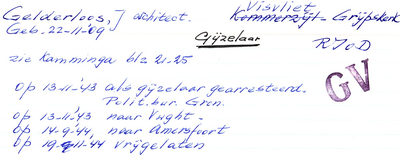 Gelderloos, J architect.
Visvliet
Kommerzijl- Grijpskerk
Geb. 22-11-'09
Gijzelaar
RIOD
zie Kamminga blz 21-25
GV
op 13-11-'43 als gijzelaar gearresteerd.
Polit. bur. Gron.
op 13-11-'43 naar Vught.
op 14-9-'44, naar Amersfoort
op 19-9-'44 vrijgelaten